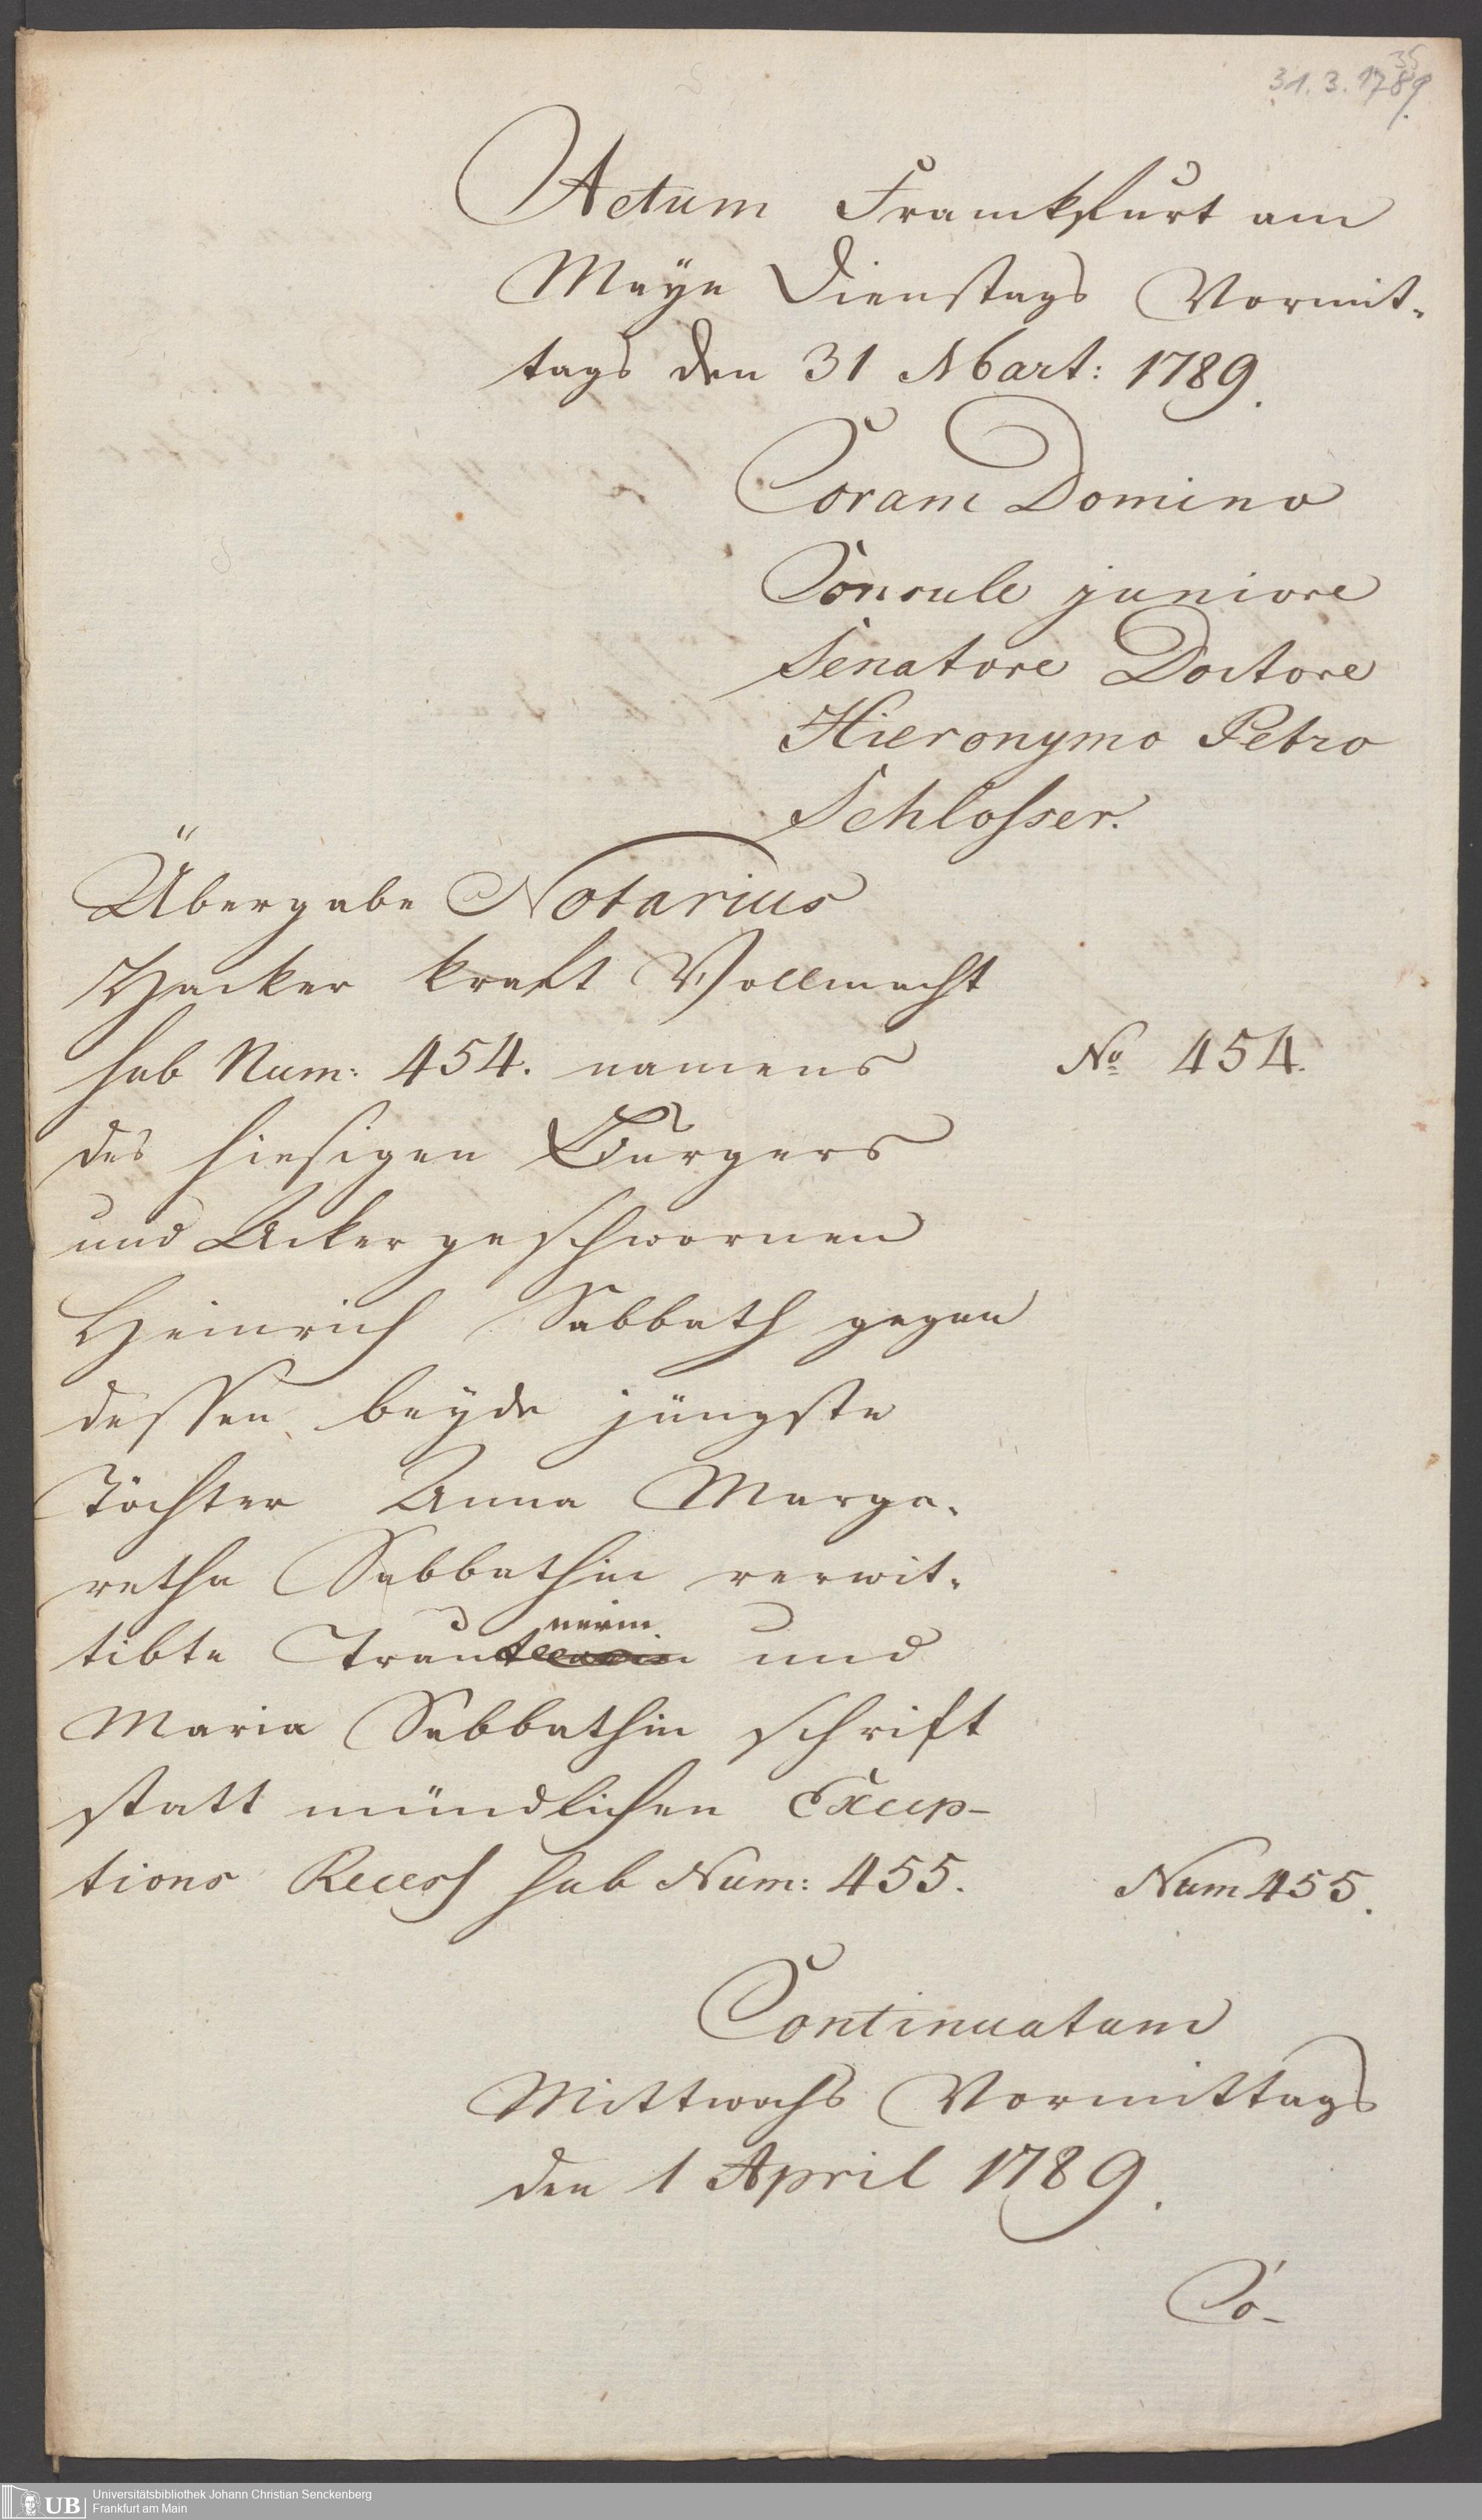 35
31.3.1789.
Actum Franckfurt am
Mayn Dienstags Vormit-
tags den 31 Mart: 1789.
Coram Domino
Consule juniore
Senatore Doctore
Hieronymo Petro
Schlosser.
Übergabe Notarius
Hacker kraft Vollmacht
sub Num: 454. namens
No 454.
des hiesigen Burgers
und Ackergeschwornen
Heinrich Sabbath gegen
dessen beyde jüngste
Töchter Anna Marga-
retha Sabbathin verwit-
nerin
tibte Traut und
Maria Sabbathin schrift
statt mündlichen Excep-
tions Recess sub Num: 455.
Num 455.
Continuatum
Mittwochs Vormittags
den 1 April 1789.
Co-
UB
Universitätsbibliothek Johann Christian Senckenberg
Frankfurt am Main